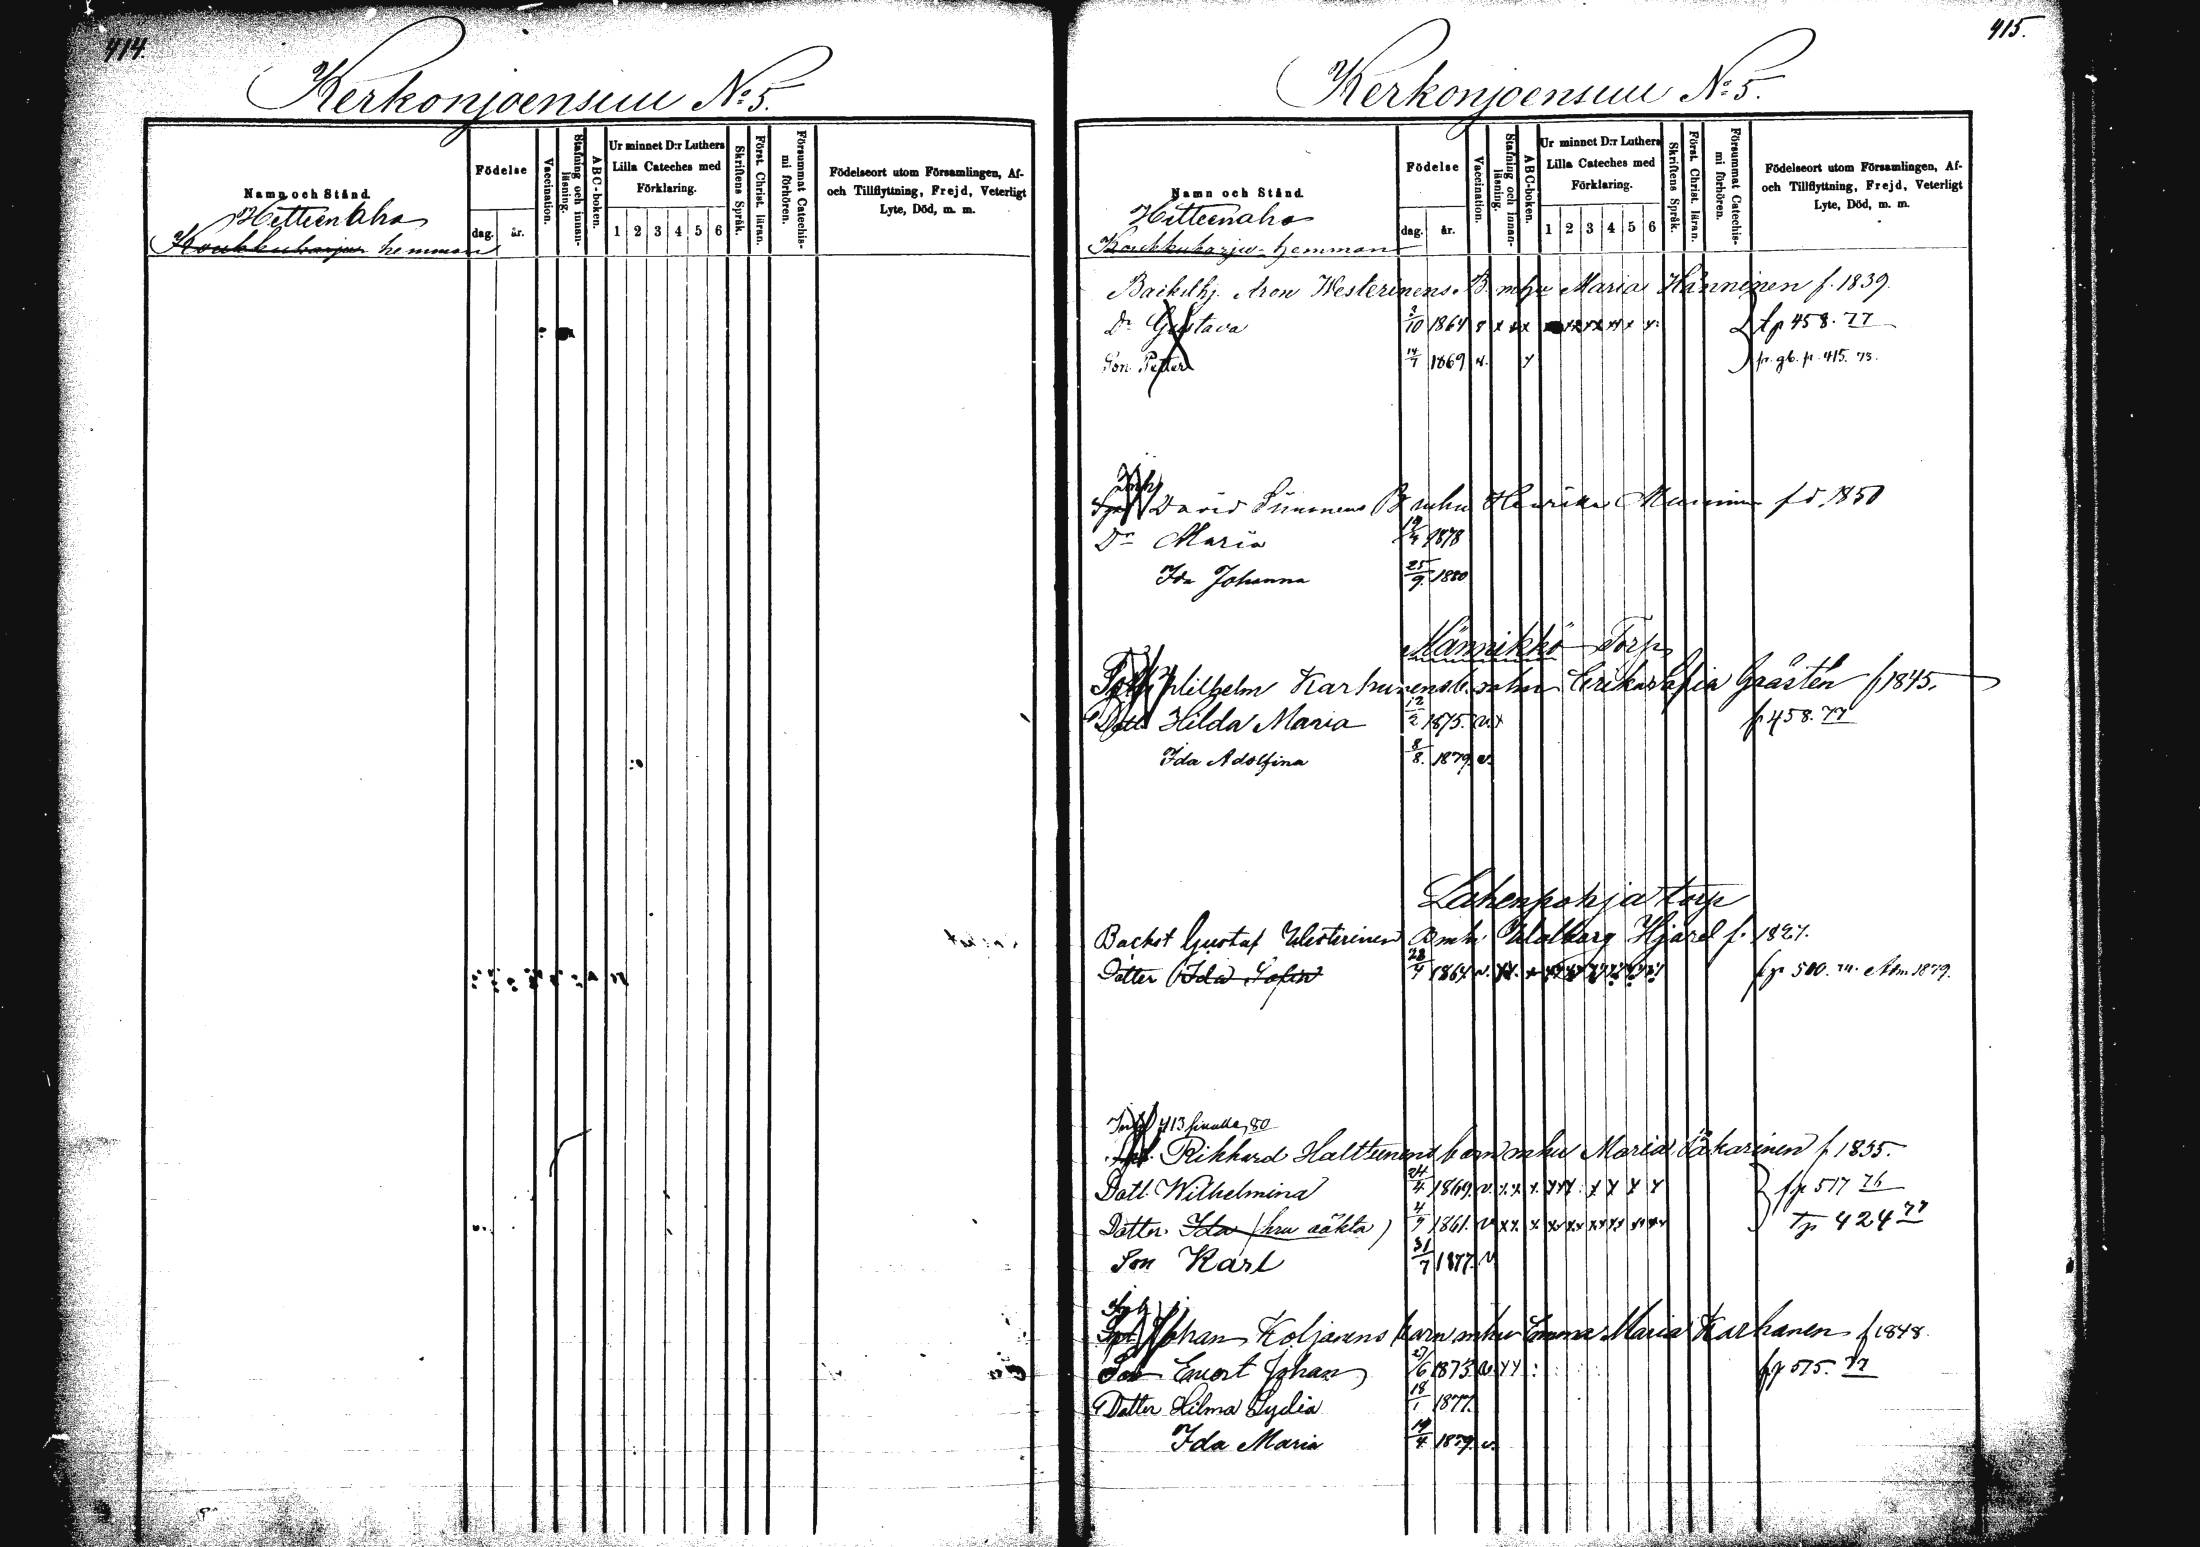 414.
Kerkonjoensuu No 5.
Namn och Stånd
Födelse
dag.
år.
Vaccination.
Stafning och innan-
läsning.
ABC-boken.
Ur minnet D:r Luthers
Lilla Cateches med
Förklaring.
1 2 3 4 5 6
Skriftens Språk.
Först. Christ. läran.
Försummat Catechis-
mi förhören.
Födelseort utom Församlingen, Af-
och Tillflyttning, Frejd, Veterligt
Lyte, Död, m. m.
Hitteenaho
Koukkuharju hemman
415.
Kerkonjoensuu No 5.
Namn och Stånd
Födelse
dag.
år.
Vaccination.
Stafning och innan-
läsning.
ABC-boken.
Ur minnet D:r Luthers
Lilla Cateches med
Förklaring.
1 2 3 4 5 6
Skriftens Språk.
Först. Christ. läran.
Försummat Catechis-
mi förhören.
Födelseort utom Församlingen, Af-
och Tillflyttning, Frejd, Veterligt
Lyte, Död, m. m.
Hitteenaho
Koukkuharju hemman
Aron Westerinens B. mhu Maria Hänninen f. 1839.
Dr Gustava 3/10 1864 tp 458. 77
Son Petter 14/7 1869 v. fr. gb. p. 415. 73.
David B mhu Henrika f. 1850
Dr Maria 19/4 1878
Ida Johanna 25/9 1880
Männikkö Torp
Wilhelm Karhunens b. mhu Erika Sofia Gråsten f 1845.
Dott. Hilda Maria 12/2 1875. v. x fp 458. 77
Ida Adolfina 8/8 1879. v.
Lahenpohja torp
Backst Gustaf Westerinen B mh Walborg Hjärd f. 1827.
Dotter Ida Sofia 28/4 1864 v. fp 500. Adm 1879.
413 80
Rikhard Halttunens barn mhu Maria f. 1835.
Dott. Wilhelmina 24/4 1869. v. x x x. fp 517 76
Dotter Ida (hru oäkta) 4/9 1861. v tp 424 77
Son Karl 31/7 1877. v
Johan Koljonens barn mhu Emma Maria Karhunen f 1848.
Son Emort Johan 27/6 1873. v. fp 515. 77
Dotter Hilma Lydia 18/1 1877.
Ida Maria 19/4 1879. v.